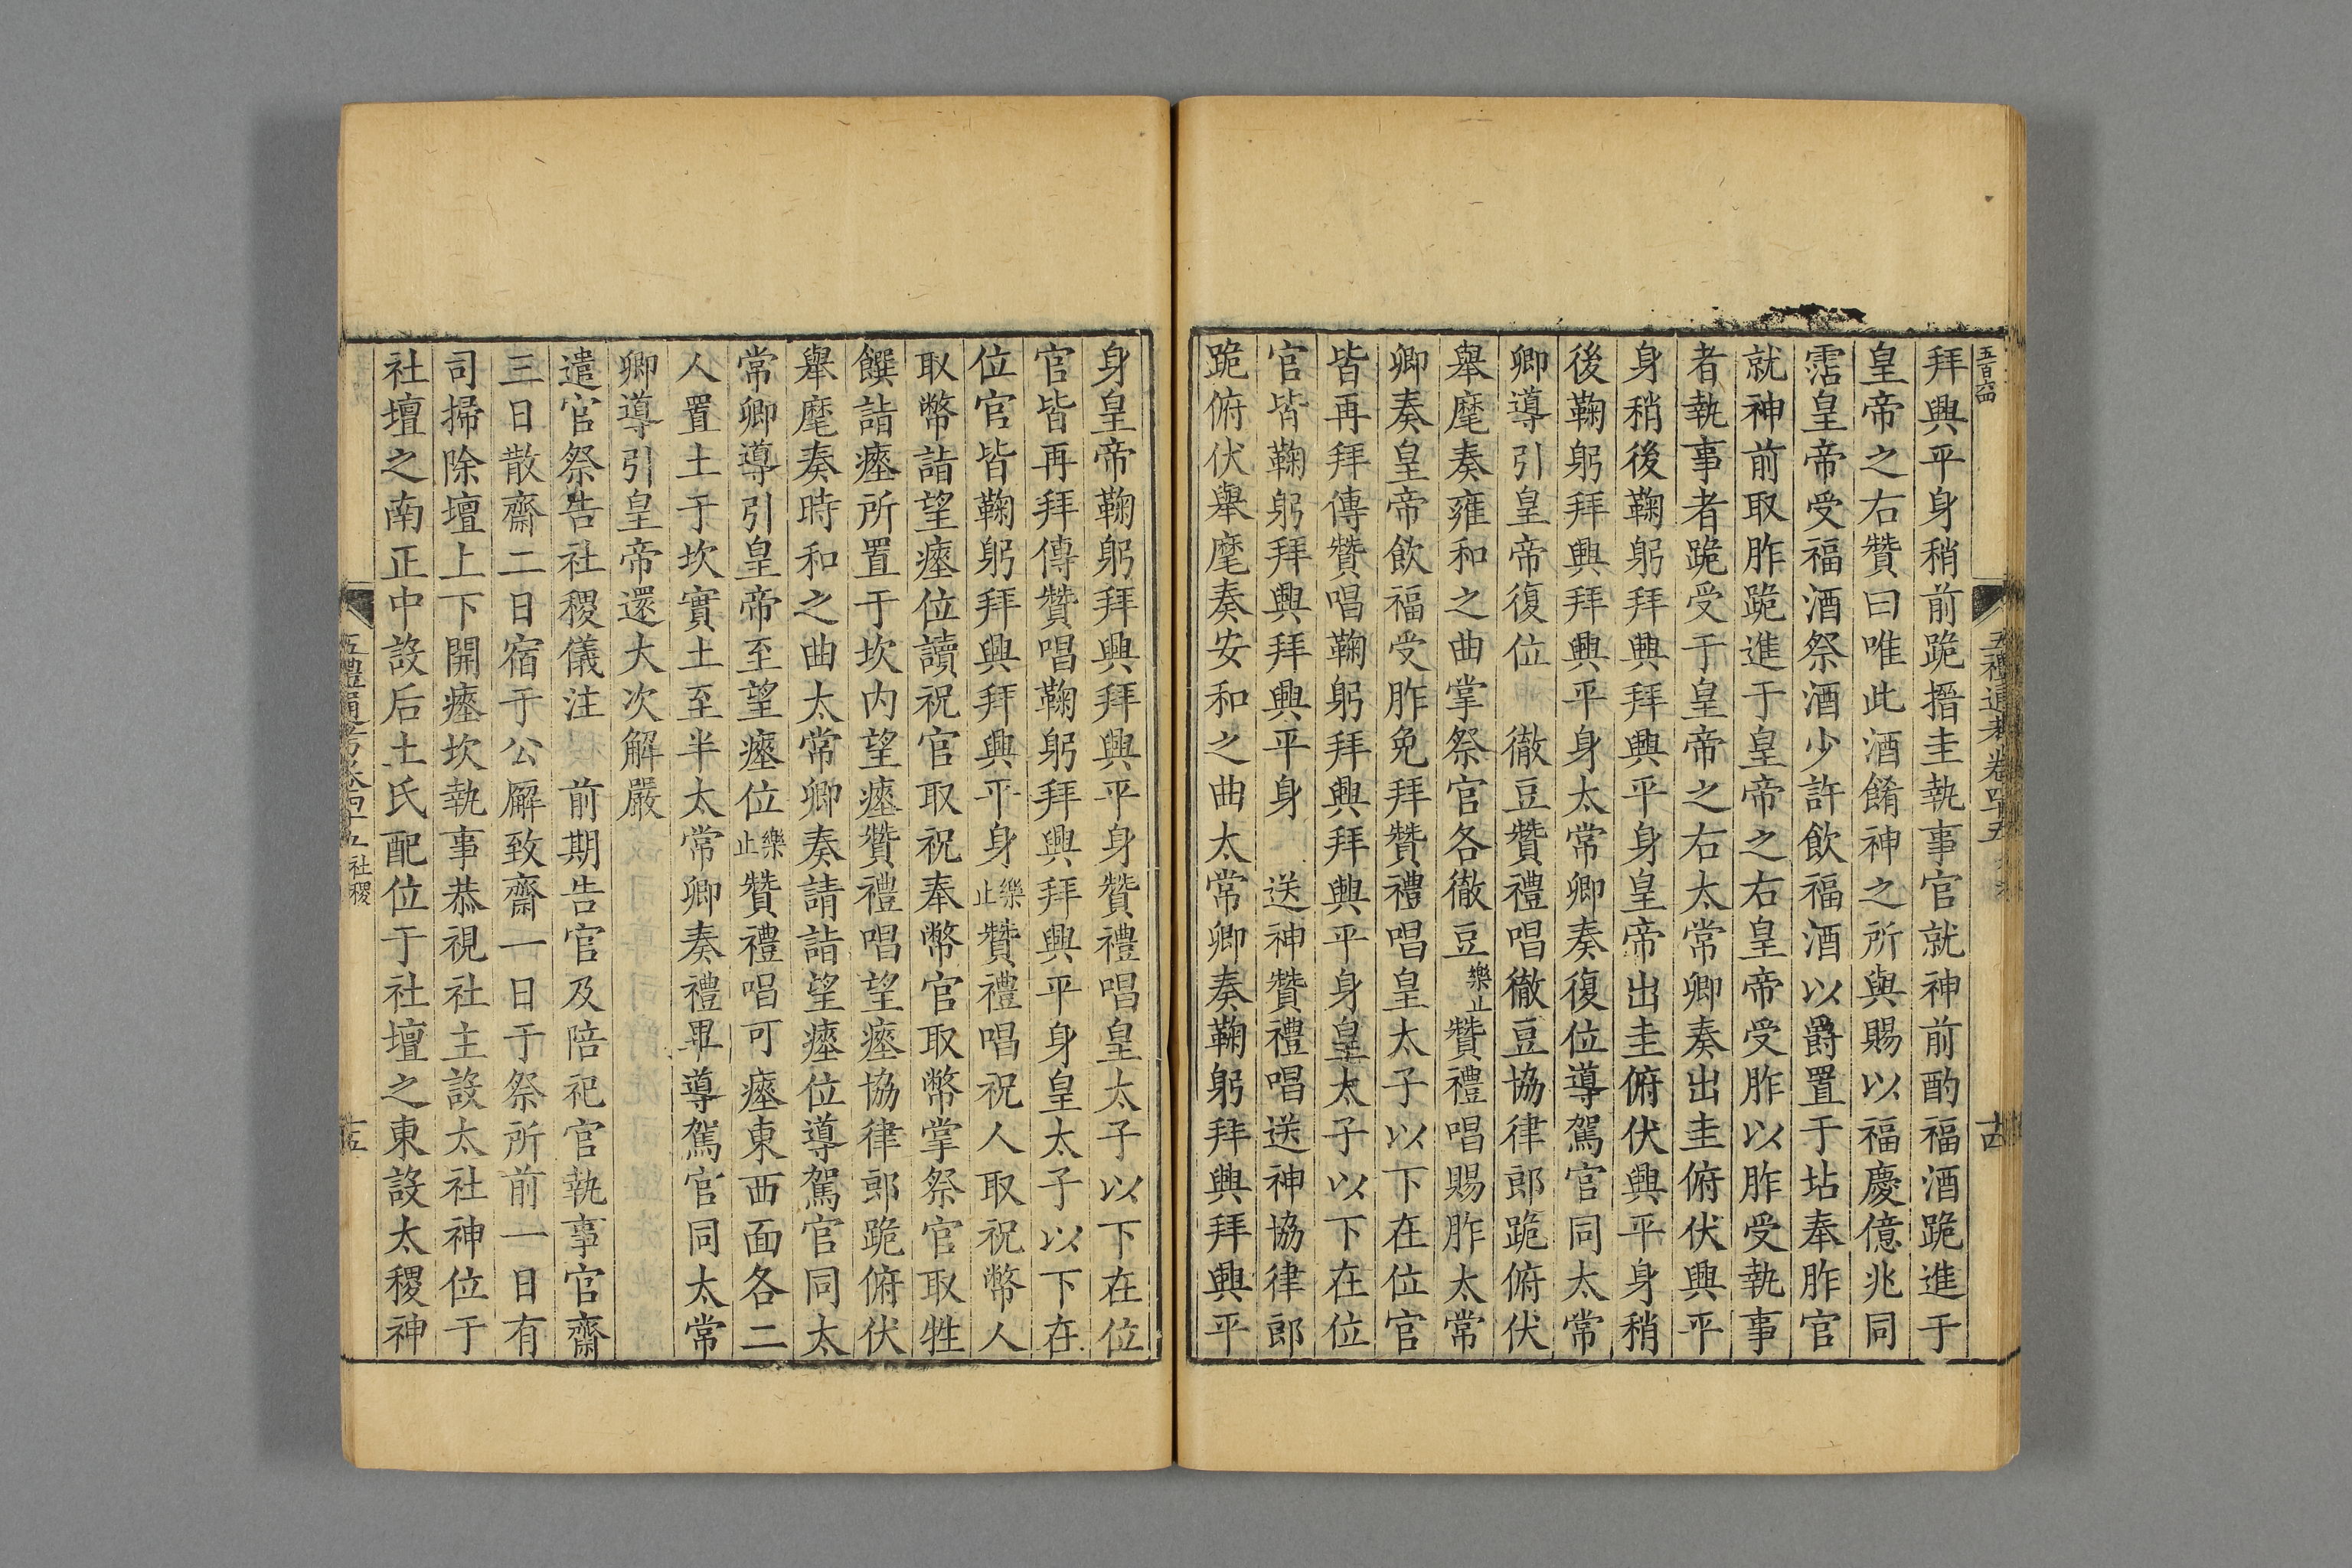 五百六四
五禮通考卷四十五
古
拜興平身稍前跪搢圭執事官就神前酌福酒跪進于
皇帝之右贊曰唯此酒餚神之所與賜以福慶億兆同
霑皇帝受福酒祭酒少許飲福酒以爵置于坫奉胙官
就神前取胙跪進于皇帝之右皇帝受胙以胙受執事
者執事者跪受于皇帝之右太常卿奏出圭俯伏興平
身稍後鞠躬拜興拜興平身皇帝出圭俯伏興平身稍
後鞠躬拜興拜興平身太常卿奏復位導駕官同太常
卿導引皇帝復位 徹豆贊禮唱徹豆協律郎跪俯伏
舉麾奏雍和之曲掌祭官各徹豆樂止贊禮唱賜胙太常
卿奏皇帝飲福受胙免拜贊禮唱皇太子以下在位官
皆再拜傳贊唱鞠躬拜興拜興平身皇太子以下在位
官皆鞠躬拜興拜興平身 送神贊禮唱送神協律郎
跪俯伏舉麾奏安和之曲太常卿奏鞠躬拜興拜興平
身皇帝鞠躬拜興拜興平身贊禮唱皇太子以下在位
官皆再拜傳贊唱鞠躬拜興拜興平身皇太子以下在
位官皆鞠躬拜興拜興平身樂止贊禮唱祝人取祝幣人
取幣詣望瘞位讀祝官取祝奉幣官取幣掌祭官取牲
饌詣瘞所置于坎内望瘞贊禮唱望瘞協律郎跪俯伏
舉麾奏時和之曲太常卿奏請詣望瘞位導駕官同太
常卿導引皇帝至望瘞位樂止贊禮唱可瘞東西面各二
人置土于坎實土至半太常卿奏禮畢導駕官同太常
卿導引皇帝還大次解嚴
遣官祭告社稷儀注 前期告官及陪祀官執事官齋
三日散齋二日宿于公廨致齋一日于祭所前一日有
司掃除壇上下開瘞坎執事恭視社主設太社神位于
社壇之南正中設后土氏配位于社壇之東設太稷神
五禮通考卷四十五 社稷
十五